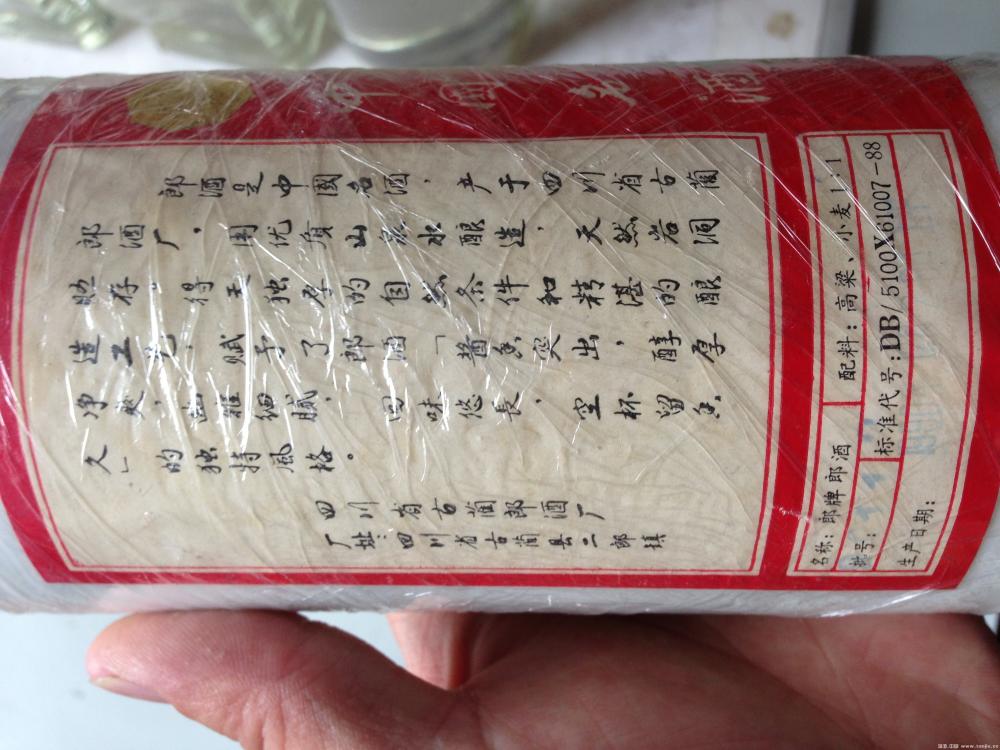 中國名酒
郎酒是中國名酒,产于四川省古蔺
郎酒厂,用优质山泉水酿造,天然岩洞
贮存。得天独厚的自然条件和精湛的酿
造工艺,赋予了郎酒「酱香突出,醇厚
净爽,幽雅细腻,回味悠長,空杯留香
久」的独特風格。
四川省古蔺郎酒厂
厂址:四川省古蔺县二郎镇
名称:郎牌郎酒 配料:高粱、小麦 1:1
批号: 标准代号:DB/5100X61007-88
生产日期: